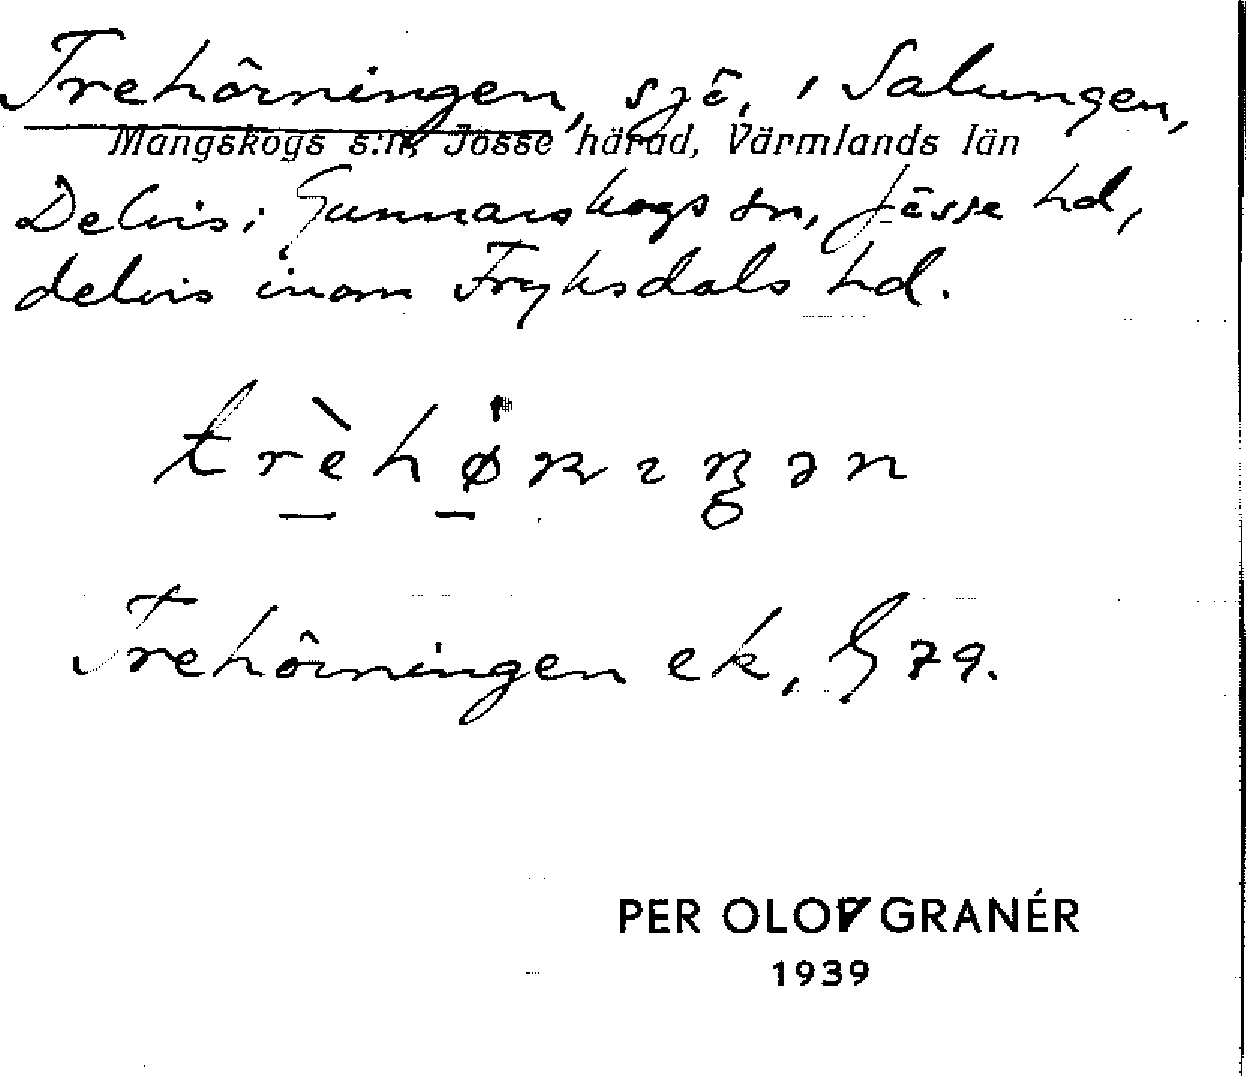 Trehörningen, sjö, i Salungen,
Mangskogs s:n, Jösse härad, Värmlands län
Delvis i Gunnarskogs sn, Jösse hd,
delvis inom Fryksdals hd.
trèhø̇rnıŋən
Trehörningen ek, G 79.
PER OLOF GRANÉR
1939